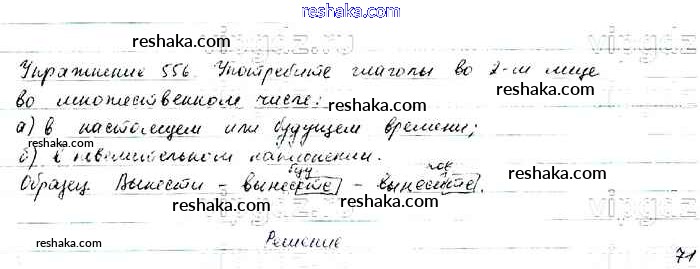 reshaka.com
Упражнение 556. Употребите глаголы во 2-м лице
во множественном числе:
а) в настоящем или будущем времени;
б) в повелительном наклонении.
буд пов
Образец Вынести - вынесете - вынесите.
Решение
71
reshaka.com
reshaka.com
reshaka.com
reshaka.com
reshaka.com
reshaka.com
reshaka.com
reshaka.com